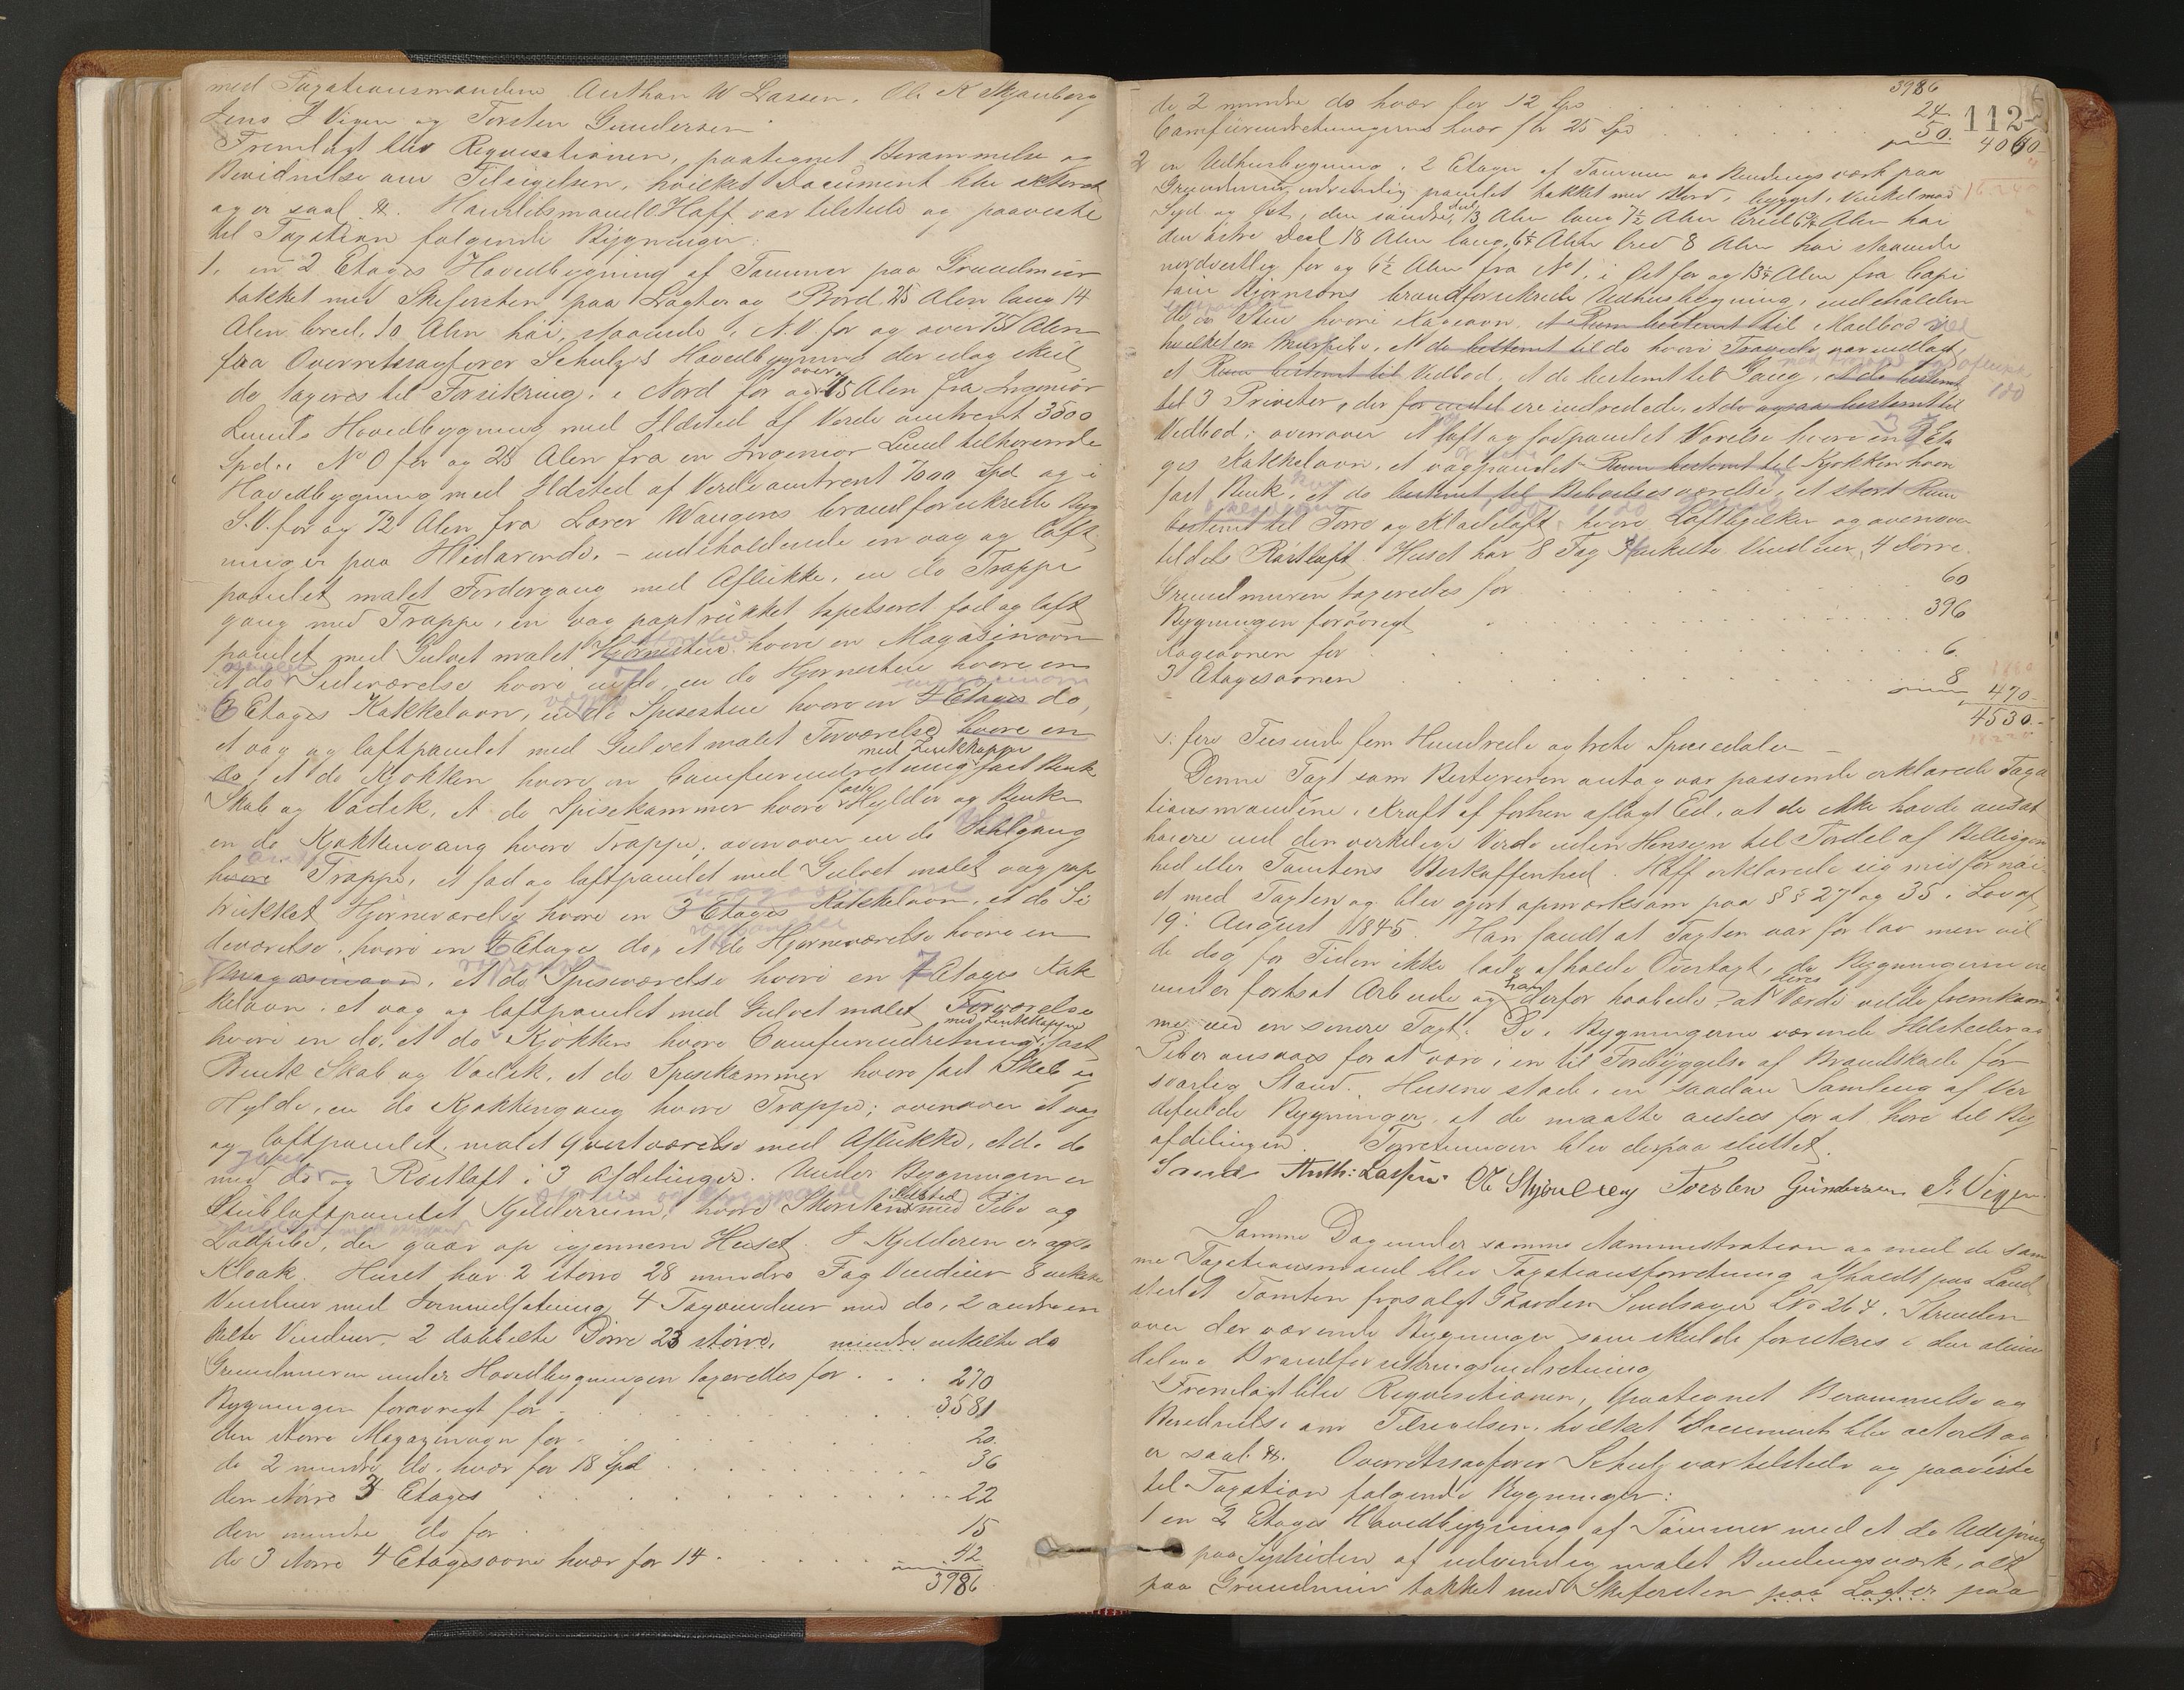 med Taxationsmændene Anthon W Lassen, Ole K Skjauberg
Jens J Vigen og Torsten Gundersen
Fremlagt blev Reqvisitionen, paategnet Berammelse og
Bevidnelse om Tilsigelsen, hvilket Document blev akteret
og er saal. &. Handelsmand O Hoff var tilstede og paaviste
til Taxation følgende Bygninger:
1. en 2 Etages Hovedbygning af Tømmer paa Grundmuur
takket med Skifersten paa Lægter og Bord 25 Alen lang 14
Alen bred, 10 Alen høi, staaende i N.V. for og over 75 Alen
fra Overretssagfører Schulzes Hovedbygning der idag skul
de taxeres til Forsikring, i Nord for og over 75 Alen fra Ingeniør
Lunds Hovedbygning med Ildsted af Værdi omtrent 3500
Spd. i N O for og 25 Alen fra en Ingeniør Lund tilhørende
Hovedbygning med Ildsted af Værdi omtrent 7000 Spd og i
S.V. for og 72 Alen fra Lærer Waugens brandforsikrede Byg
ninger paa Hlidarende. - indeholdende en væg og loft
panelet malet Fordergang med Aflukke, en do Trappe
gang med Trappe, en væg paptrukket tapetseret fod og loft
panelet med Gulvet malet Hjørnestue hvori en Magasinovn
et do Sideværelse hvori en do, en do Hjørnestue hvori en
6 Etages Kakkelovn, en do Spisestue hvori en 4 Etages do,
et væg og loftpanelet med Gulvet malet Forværelse hvori en
do, et do Kjøkken hvori en Comfurindretning med Zinkkappe fast Benk
Skab og Vadsk, et do Spisekammer hvori faste Hylder og Benk
en do Kjøkkengang hvori Trappe, ovenover en do Sahlgang
hvori Trappe, et fod og loftpanelet med Gulvet malet væg pap
trukket Hjørneværelse hvori en 3 Etages Kakkelovn, et do Si
deværelse, hvori en 4 Etages do, et do Hjørneværelse hvori en
Magasinovn, et do Spiseværelse hvori en 7 Etages Kak
kelovn, et væg og loftpanelet med Gulvet malet Forværelse
hvori en do, et do Kjøkken hvori Comfurindretning med Zinkkappe fast
Benk Skab og Vadsk, et do Spisekammer hvori fast Skab og
Hylde, en do Kjøkkengang hvori Trappe; ovenover et væg
og loftpanelet, malet Qvistværelse med Aflukke, et do do
med do og Røstloft i 3 Afdelinger. Under Bygningen er
Stubloftpanelet Kjelderrum, hvori Skorsten Ildsted med Pibe og
Lodpibe, der gaar op igjennem Huset. I Kjelderen er ogs
Kloak. Huset har 2 større 28 mindre Fag Vinduer 8 enkelte
Vinduer med Jernindfatning, 4 Tagvinduer med do, 2 andre en
kelte Vinduer, 2 dobbelte Dørre 23 større, mindre enkelte do
Grundmuren under Hovedbygningen taxeredes for . . . 270
Bygningen forøvrigt for . . . 3581
den større Magazinovn for . . . 20.
de 2 mindre do. hver for 18 Spd . . . 36
den større 7 Etages . . . 22
den mindre do for . . . 15
de 3 større 4 Etagesovne hver for 14 . . . 42
3986
3986
de 2 mindre do hver for 12 Spd . . . 24
Comfurindretningerne hver for 25 Spd . . . 50.
112
4060
2 en Udhusbygning i 2 Etager af Tømmer og Bindingsværk paa
Grundmur, udvendig panelet takket med Bord, bygget i Vinkel mod
Syd og Øst, den søndre Del 13 Alen lang 7½ Alen bred 6¾ Alen høi
den østre Deel 18 Alen lang, 6¼ Alen bred 8 Alen høi staaende
nordvestlig for og 6½ Alen fra No 1, i Øst for og 13½ Alen fra Capi
tain Bjørnsons brandforsikrede Udhusbygning, indeholden
de en Stue hvori Bageovn, et Rum bestemt til Madbod i
hvilket en Murpibe, et do bestemt til do hvori
et Rum bestemt til Vedbod, et do bestemt til Gang, et do bestemt
til 3 Priveter, der for endel ere indredede, et do ogsaa bestemt til
Vedbod; ovenover et loft og fodpanelet Værelse hvori en 3 Eta
ges Kakkelovn, et vægpanelet Rum bestemt til Kjøkken hvori
fast Benk, et do bestemt til Beboelsesværelse, et stort Rum
bestemt til Tørre og Klædeloft, hvori Loftbjelker og ovenover
tildels Røstloft. Huset har 8 Fag enkelte Vinduer, 4 Dørre.
Grundmuren taxeredes for . . . 60
Bygningen forøvrigt . . . 396
Bageovnen for . . . 6.
3 Etagesovnen . . . 8
470
4530.-
s: fire Tusinde fem Hundrede og trete Speciedaler -
Denne Taxt som Bestyreren antog var passende erklærede Taxa
tionsmændene i Kraft af forhen aflagt Eed, at de ikke havde ansat
høiere end den virkelige Værdi uden Hensyn til Fordel af Beliggen
hed eller Tomtens Beskaffenhed. Hoff erklærede sig misfornøi
et med Taxten og blev gjort opmærksom paa §§ 27 og 35 i Lov af
19: August 1845. Han fandt at Taxten var for lav men vil
de dog for Tiden ikke lade afholde Overtaxt, da Bygningerne ere
under fortsat Arbeide og han derfor haabede, at deres Værdi vilde fremkom
me ved en senere Taxt. De i Bygningerne værende Ildsteder og
Piber ansaaes for at være i en til Forebyggelse af Brandskade for
svarlig Stand. Husene stode i en saadan Samling af Ver
difulde Bygninger, at de maatte ansees for at høre til By
afdelingen. Forretningen blev derpaa sluttet.
Sand Anth: Lassen Ol Skjoulberg Torsten Gundersen J. Vigen
Samme Dag under samme Administration og med de sam
me Taxationsmænd blev Taxationsforretning afholdt paa Land
stedet Tomten frasolgt Gaarden Sindsager L No 264. Strinden
over der værende Bygninger som skulde forsikres i den almin
delige Brandforsikringsindretning
Fremlagt blev Reqvisitionen, paategnet Berammelse og
Bevidnelse om Tilsigelsen, hvilket Document blev acteret og
er saal. &. Overretssagfører Schulz var tilstede og paaviste
til Taxation følgende Bygninger:
1 en 2 Etages Hovedbygning af Tømmer med et do Udspring
paa Sydsiden af udvendig malet Bindingsværk, alt
paa Grundmur takket med Skifersten paa Lægter paa